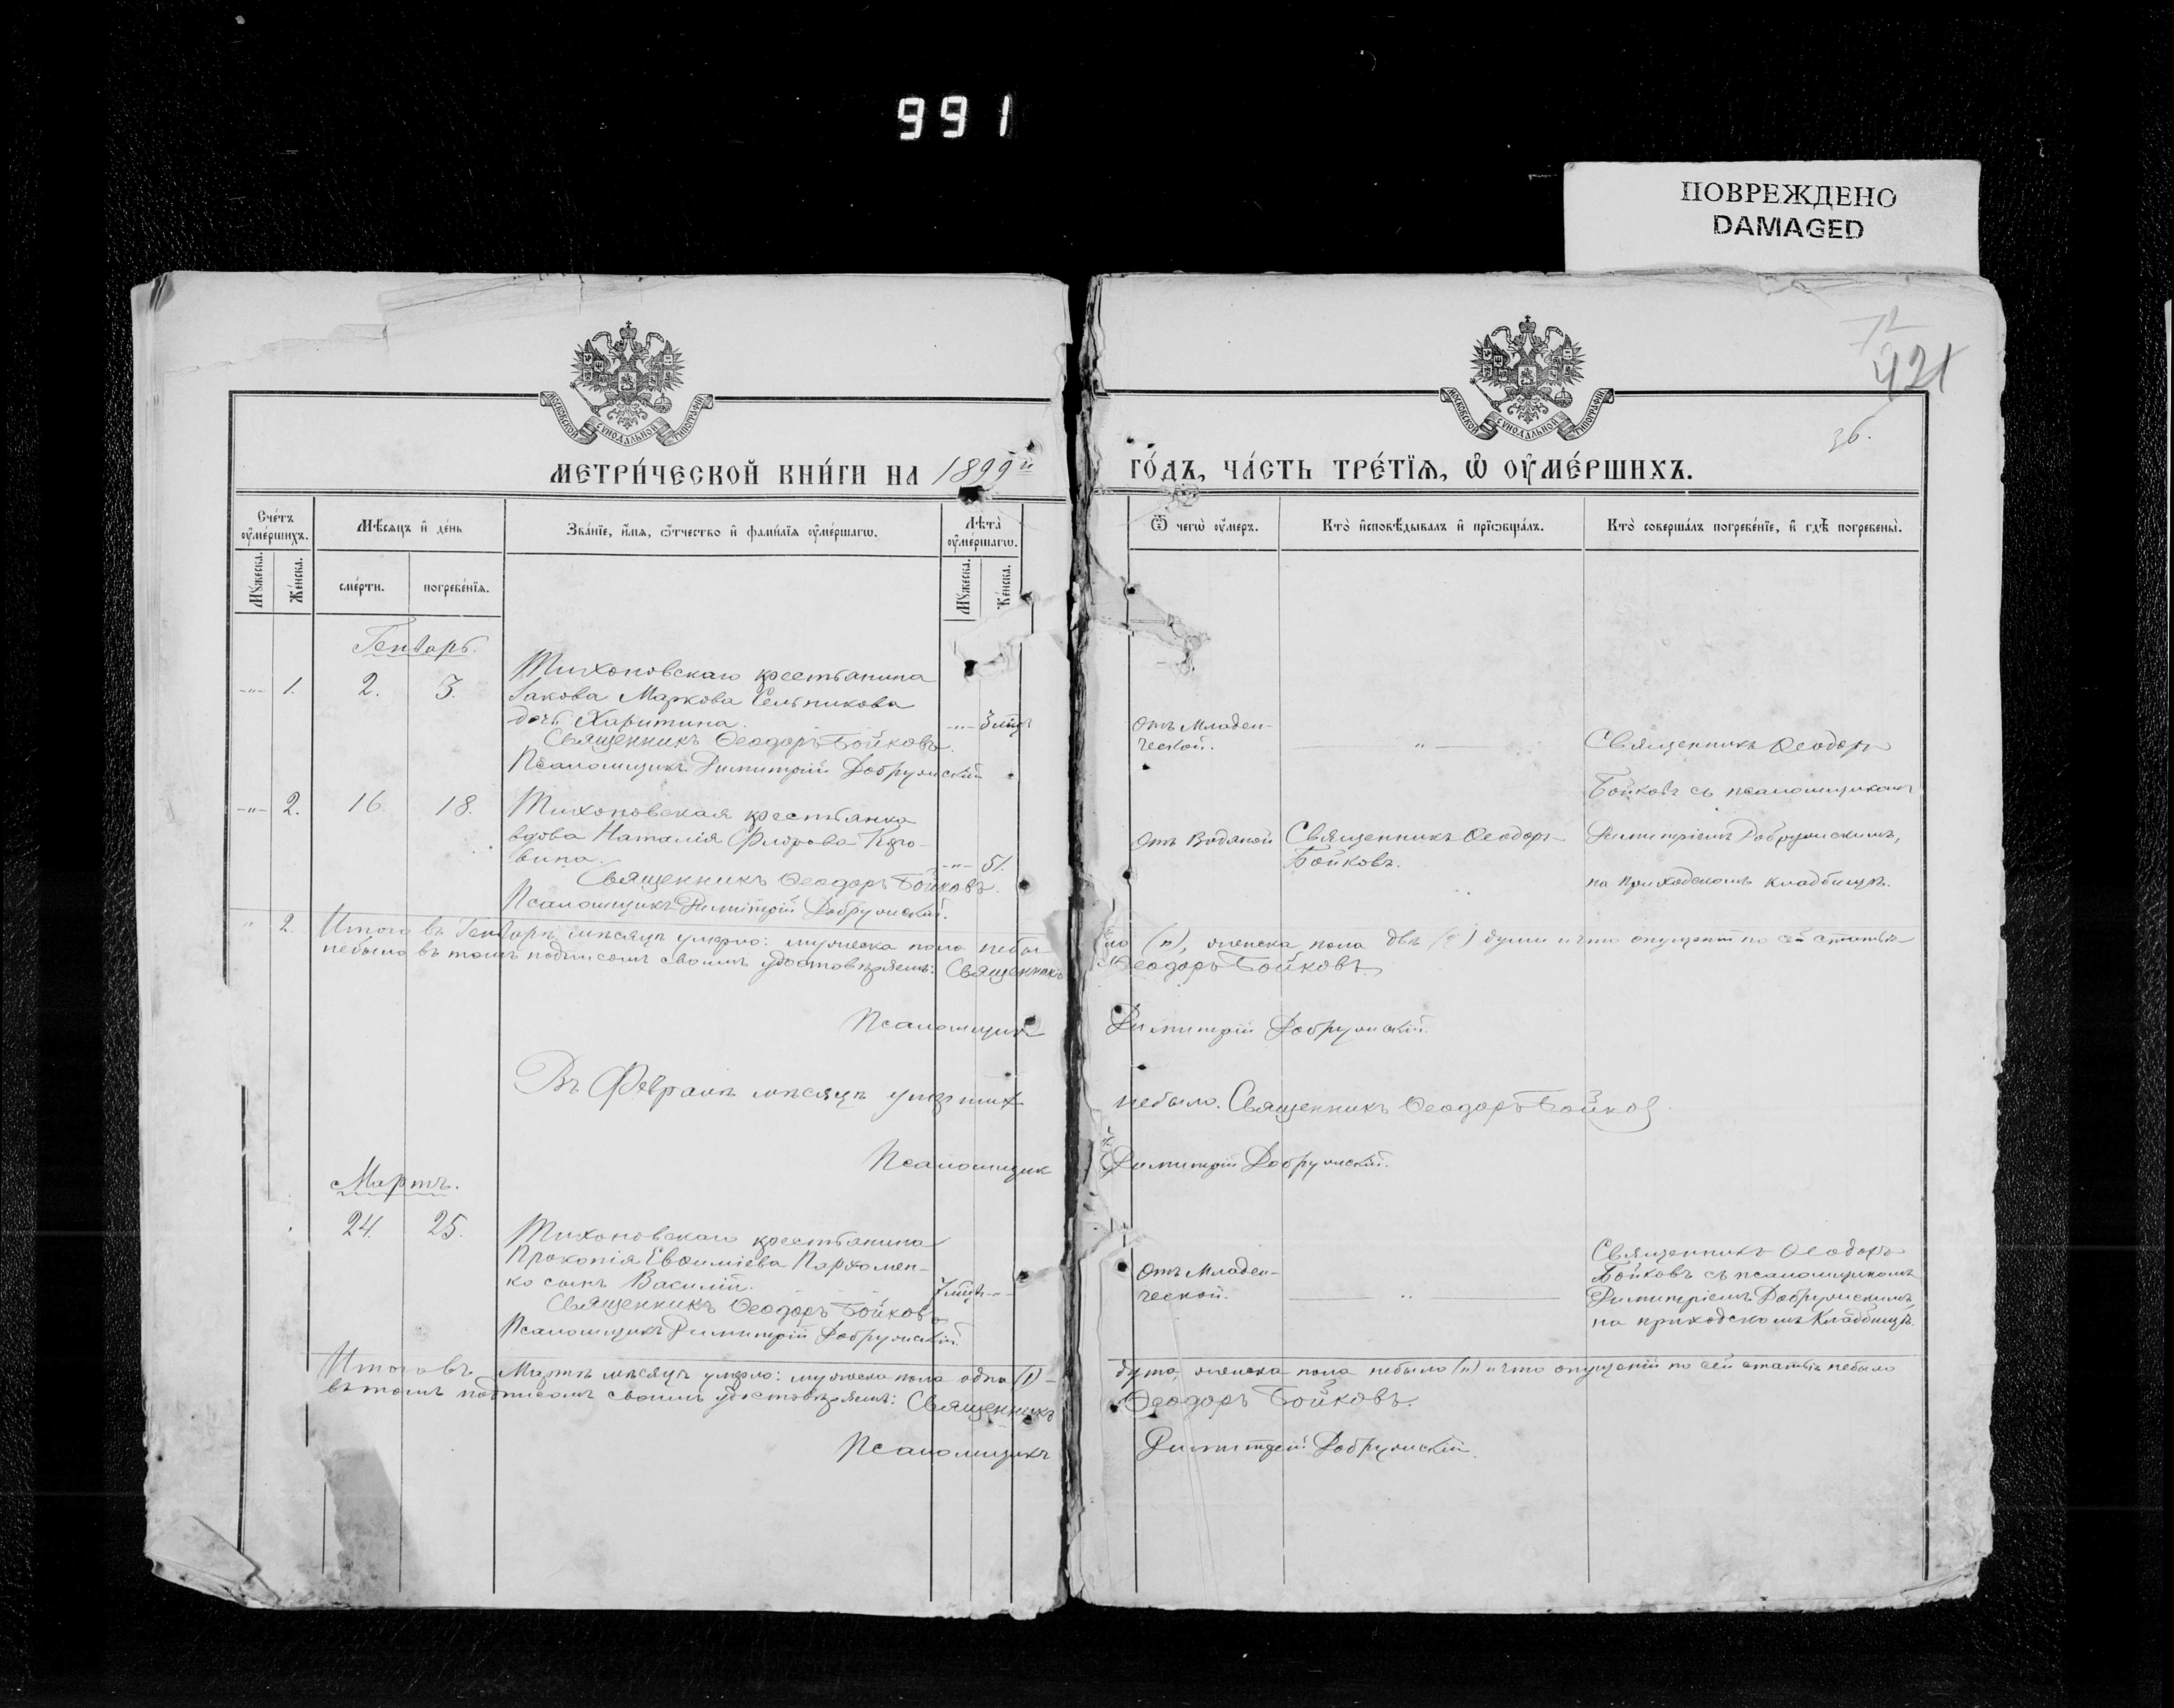 991
ПОВРЕЖДЕНО
DAMAGED
72
421
36.
МОСКОВСКОЙ СУНОДАЛЬНОЙ ТИПОГРАФІИ
МОСКОВСКОЙ СУНОДАЛЬНОЙ ТИПОГРАФІИ
МЕТРИ́ЧЕСКОЙ КНИ́ГИ НА 1899й
ГО́ДЪ, ЧА́СТЬ ТРЕ́ТЇѦ, Ѡ҆ ОУ҆МЕ́РШИХЪ.
Сче́тъ оу҆ме́ршихъ.
Мѣ́сяцъ и҆ де́нь
Зва́нїе, и҆́мѧ, ѻ҆́тчество и҆ фами́лїѧ оу҆ме́ршагѡ.
Лѣ́та̀ оу҆ме́ршагѡ.
Ѿ чегѡ̀ оу҆́меръ.
Кто̀ и҆сповѣ́дывалъ и҆ прїѡбща́лъ.
Кто̀ соверша́лъ погребе́нїе, и҆ гдѣ̀ погребены̀.
Мꙋ́жеска.
Же́нска.
сме́рти.
погребе́нїѧ.
Мꙋ́жеска.
Же́нска.
Генварь.
-"- 1. 2. 3. Тихоновскаго крестьанина
Іакова Маркова Сельникова
дочь Харитина. -"- 3 мѣц.
Священникъ Ѳеодоръ Бойковъ.
Псаломщикъ Димитрій Добружскій
Отъ Младен-
ческой.
" —
Священникъ Ѳеодоръ
Бойковъ съ псаломщикомъ
Димитріемъ Добружскимъ,
на приходскомъ кладбищѣ.
-"- 2. 16. 18. Тихоновская крестьянка
вдова Наталія Флорова
вина. -"- 51.
Священникъ Ѳеодоръ Бойковъ.
Псаломщикъ Димитрій Добружскій.
Отъ Водяной
Священникъ Ѳеодоръ
Бойковъ.
" 2. Итого въ Генварѣ мѣсяцѣ умерло: мужеска пола небы-
ло (н), женска пола двѣ (2) души и что опущеній по сей статьѣ
небыло въ томъ подписомъ своимъ удостовѣряемъ: Священникъ
Ѳеодоръ Бойковъ.
Псаломщикъ
Димитрій Добружскій.
Въ Февралѣ мѣсяцѣ умершихъ
небыло. Священникъ Ѳеодоръ Бойков
Псаломщик
Димитрій Добружскій.
Мартъ.
24. 25. Тихоновскаго крестьанина
Прокопія Евѳиміева Пархомен-
ко сынъ Василій. 7 мѣц. -"-
Священникъ Ѳеодоръ Бойковъ
Псаломщикъ Димитрій Добружскій.
Отъ Младен-
ческой.
— " —
Священникъ Ѳеодоръ
Бойковъ съ псаломщикомъ
Димитріемъ Добружскимъ,
на приходскомъ Кладбищѣ.
Итого въ Мартѣ мѣсяцѣ умерло: мужеска пола одна (1)-
душа, женска пола небыло (н) и что опущеній по сей статьѣ небыло
въ томъ подписомъ своимъ удостовѣряемъ: Священникъ
Ѳеодоръ Бойковъ.
Псаломщикъ
Димитрій Добружскій.